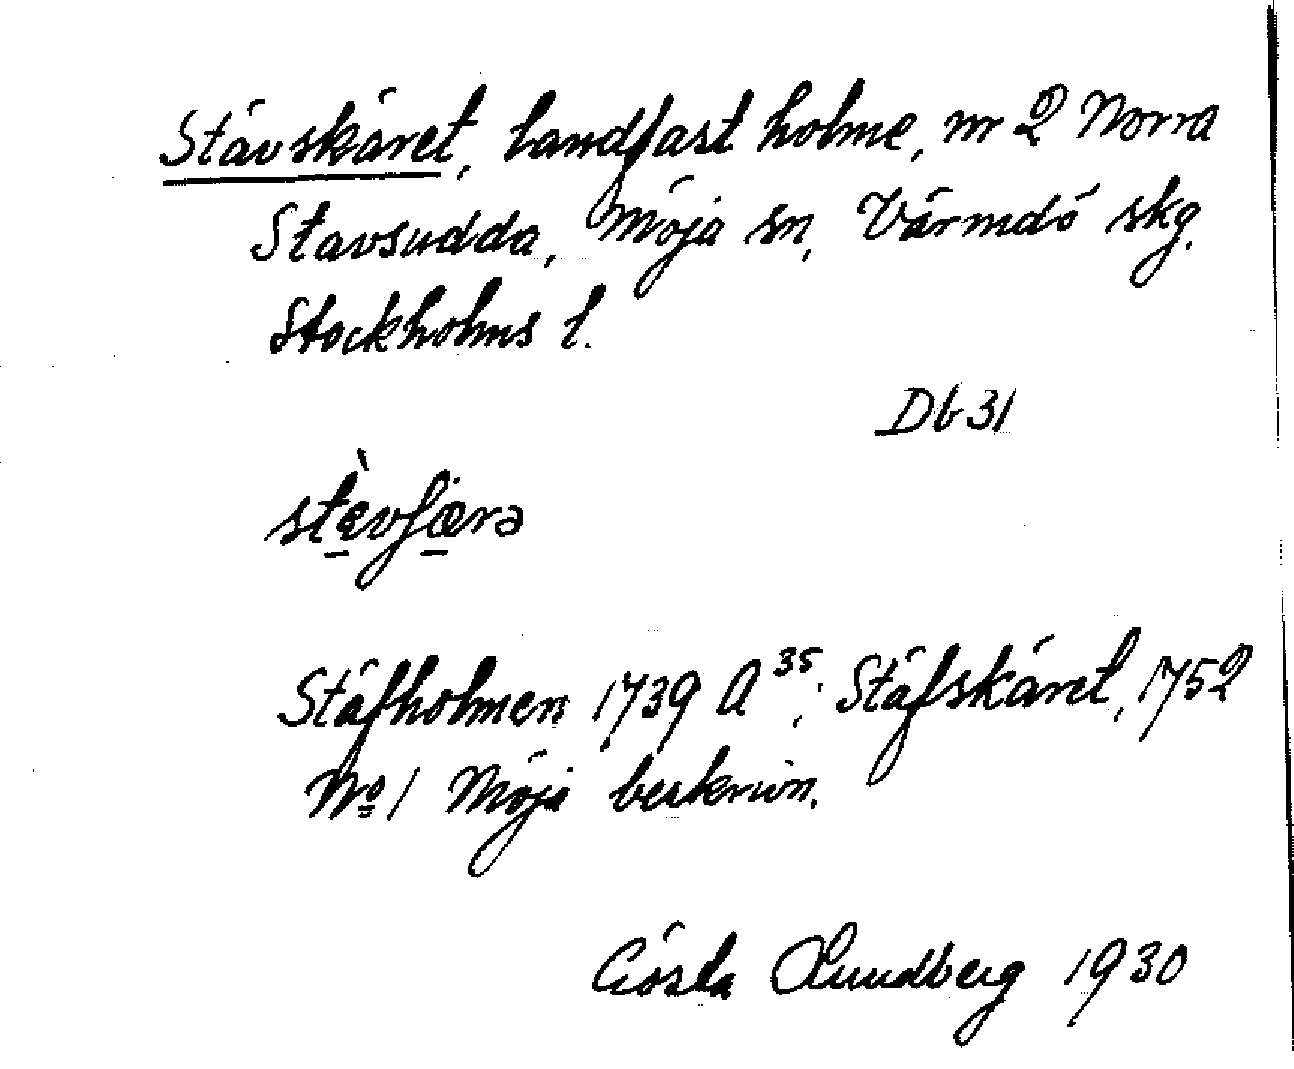 Stävskäret, landfast holme, nr 2 Norra
Stavsudda, Möja sn, Värmdö skg.
Stockholms l.
Db 31
stɛ̀vʃæ̇rə
Stäfholmen 1739 A 35; Stäfskäret, 1752
No 1 Möja beskrivn.
Gösta Lundberg 1930